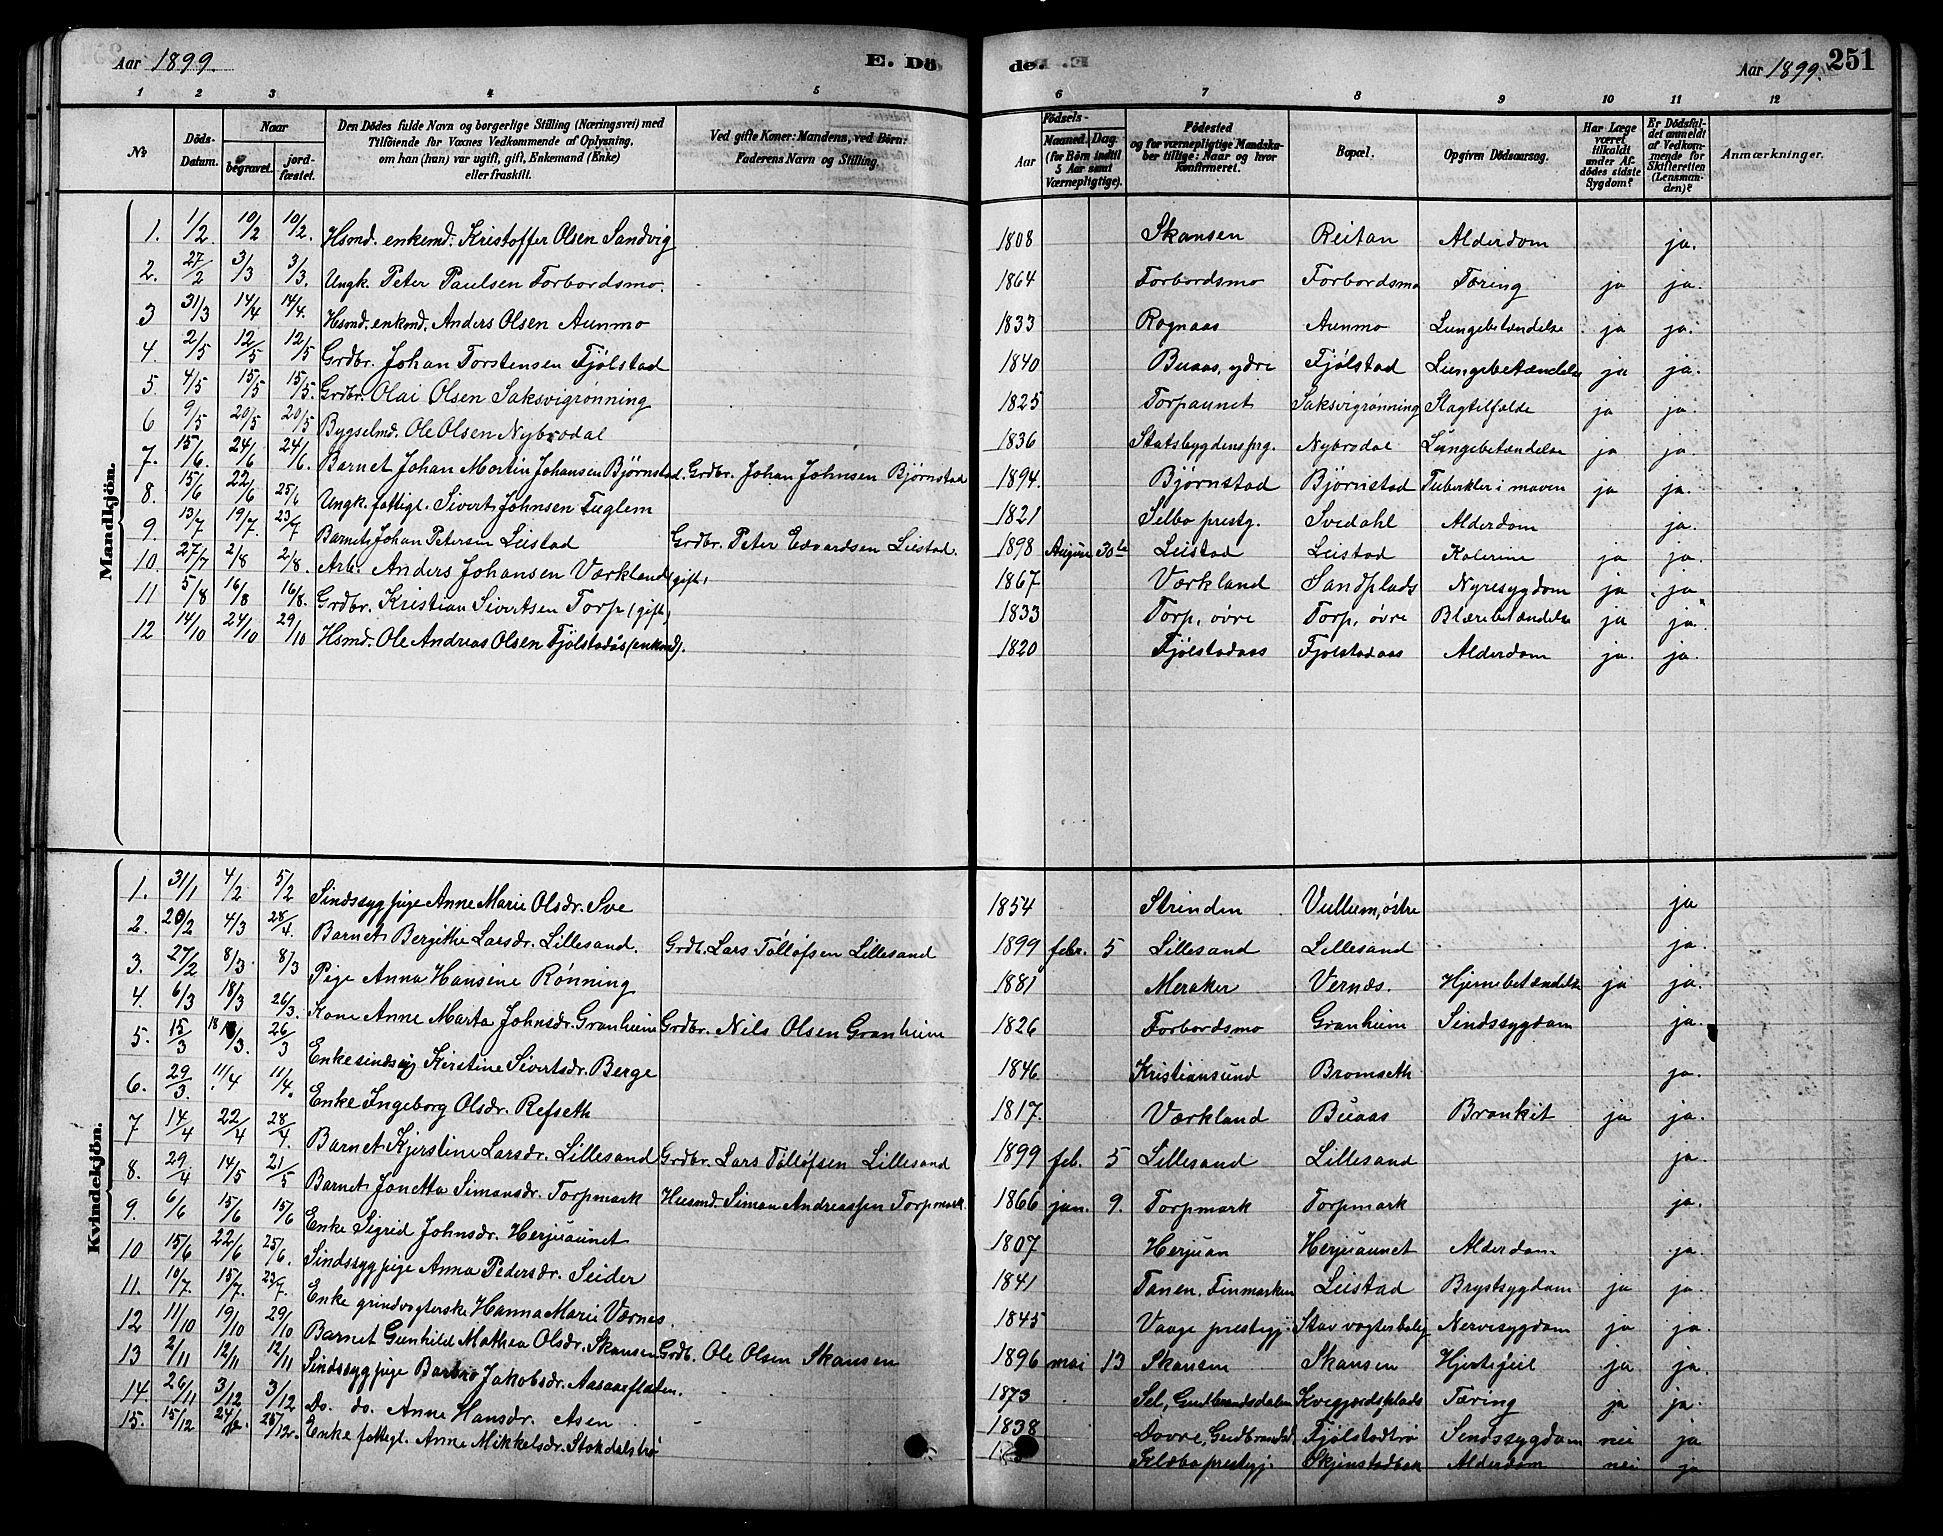 Aar 1899. E. Dö de. Aar 1899. 251
1 2 3 4 5 6 7 8 9 10 11 12
No. Döds-Datum. Naar begravet. jordfæstet. Den Dödes fulde Navn og borgerlige Stilling (Næringsvei) med Tilföiende for Voxnes Vedkommende af Oplysning, om han (hun) var ugift, gift, Enkemand (Enke) eller fraskilt. Ved gifte Koner: Mandens, ved Börn: Faderens Navn og Stilling. Födsels- Aar Maaned. Dag. (for Börn indtil 5 Aar samt Værnepligtige). Födested og for værnepligtige Mandskaber tillige: Naar og hvor konfirmeret. Bopæl. Opgiven Dödsaarsag. Har Læge været tilkaldt under Afdödes sidste Sygdom? Er Dödsfaldet anmeldt af Vedkommende for Skifteretten (Lensmanden)? Anmærkninger.
Mandkjön.
1. 1/2 10/2 10/2. Hsmd. enkemd. Kristoffer Olsen Sandvig 1808 Skansen Reitan Alderdom ja.
2. 27/2 3/3 3/3. Ungk. Peter Paulsen Forbordsmo. 1864 Forbordsmo Forbordsmo Tæring ja ja.
3 31/3 14/4 14/4. Hsmd. enkmd. Anders Olsen Aunmo 1833 Rognaas Aunmo Lungebetændelse ja ja.
4. 2/5 12/5 12/5 Grdbr. Johan Torstensen Fjølstad 1840 Buaas, ydre Fjølstad Lungebetændelse ja ja.
5 4/5 15/5 15/5. Grdbr. Olai Olsen Saksvigrønning 1825 Torpaunet Saksvigrønning Slagtilfælde ja ja.
6 9/5 20/5 20/5 Bygselmd. Ole Olsen Nybrodal 1836 Statsbygdens prg. Nybrodal Lungebetændelse ja ja.
7. 15/6. 24/6 24/6. Barnet Johan Mortin Johansen Bjørnstad. Grdbr. Johan Johnsen Bjørnstad 1894. Bjørnstad Bjørnstad Tuberkler i maven ja ja.
8. 15/6 22/6 25/6 Ungk. fattigl. Sivert Johnsen Fuglem 1821 Selbo prestg. Svedahl Alderdom ja.
9. 13/7 19/7. 23/7 Barnet Johan Petersen Leistad Grdbr. Peter Edvardsen Leistad. 1898 August 30te Leistad Leistad Kolerine ja ja
10. 27/7 2/8 2/8. Arb. Anders Johansen Værkland (gift) 1867 Værkland Sandplads Nyresygdom ja ja
11 5/8 16/8 16/8. Grdbr. Kristian Sivertsen Torp (gift) 1833 Torp, øvre Torp, øvre Blærebetændelse ja ja.
12 14/10 24/10 29/10 Hsmd. Ole Andreas Olsen Fjølstadås (enkmd). 1820 Fjølstadaas Fjølstadaas Alderdom ja. ja.
Kvindekjön.
1. 31/1 4/2 5/2 Sindssyg pige Anne Marie Olsdr. Sve 1854 Strinden Vullum, østre ja
2. 20/2 4/3 28/4. Barnet Bergithe Larsdr. Lillesand. Grdb. Lars Tølløfsen Lillesand 1899 febr. 5 Lillesand Lillesand ja.
3. 27/2 8/3. 8/3 Pige Anna Hansine Rønning 1881 Meraker Vernæs. Hjernebetændelse ja ja.
4. 6/3 18/3 26/3. Kone Anne Marta Johnsdr. Granheim Grdbr. Nils Olsen Granheim 1826 Forbordsmo Granheim Sindssygdom ja.
5. 15/3 18/3. 26/3 Enke sindssyg Kirstine Sivertsdr. Berge 1846 Kristiansund Bromseth ja.
6. 29/3. 11/4 11/4. Enke Ingeborg Olsdr. Refseth 1817. Værkland Buaas Bronkit ja ja.
7 14/4 22/4 28/4. Barnet Kjerstine Larsdr. Lillesand Grdbr. Lars Tølløfsen Lillesand 1899 feb. 5 Lillesand Lillesand ja.
8. 29/4 14/5 21/5 Barnet Jonetta Simonsdr. Torpmark Husmd. Simon Andreassen Torpmark. 1866 jan. 9. Torpmark Torpmark ja.
9. 6/6 15/6 15/6 Enke Sigrid Johnsdr. Herjuaunet 1807 Herjuan Herjuaunet Alderdom ja.
10 15/6 22/6 25/6. Sindssyg pige Anna Pedersdr. Seider 1841 Tanen, Finmarken Leistad Brystsygdom ja ja.
11. 10/7. 15/7. 23/7. Enke grindvogterske Hanna Marie Værnes. 1845 Vaage prestegj. Stavvogterbolig Nervesygdom ja ja.
12 11/10 19/10 29/10 Barnet Gunhild Mathea Olsdr. Skansen Grdb. Ole Olsen Skansen 1896 mai 13 Skansen Skansen Hjertefeil ja. ja.
13 2/11 12/11 12/11 Sindssyg pige Barbro Jakobsdr. Aasaarflaten. 1873 Sel, Gudbrandsdalen Kvegjerdsplads Tæring ja ja.
14. 26/11 3/12 3/12 Do. do. Anne Hansdr. Åsen 1838 Dovre, Gudbrandsd. Fjølstadtrø Sindssygdom nei ja
15. 15/12 24/12. 26/12. Enke fattigl. Anne Mikkelsdr. Stokdalstrø Klæbo prestegj. Skjenstadbak Alderdom nei ja